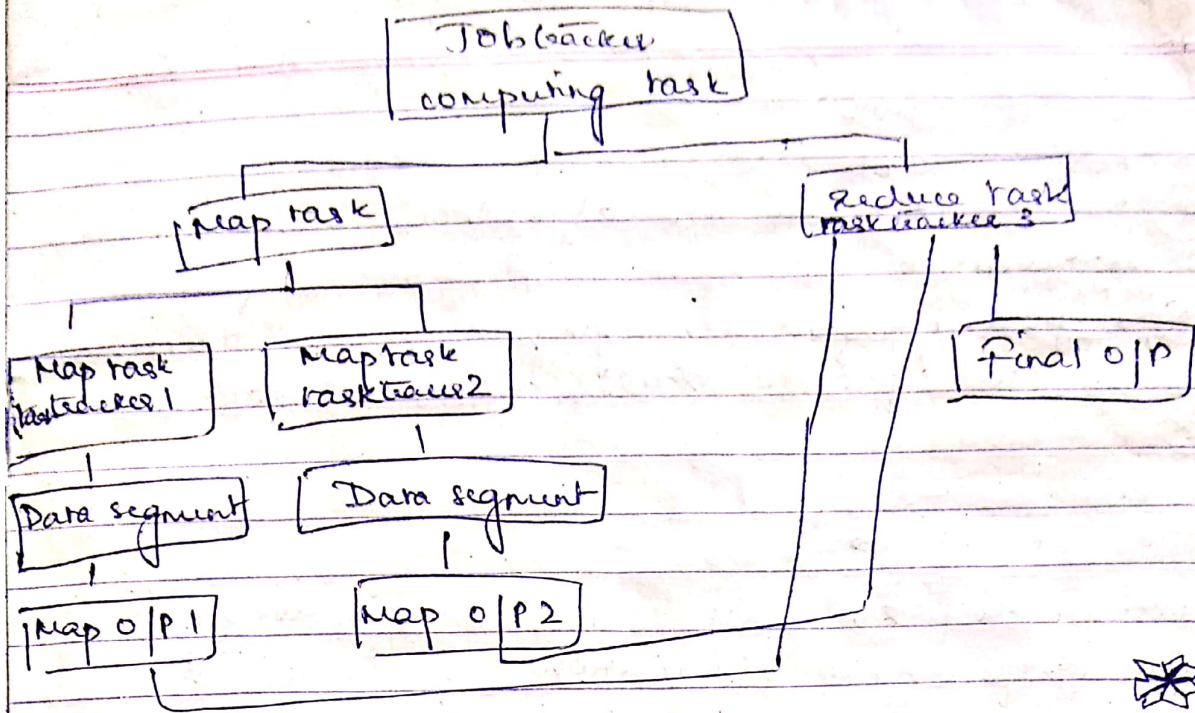 Jobtracker
computing task
Map task
Reduce task
tasktracker 3
Map task
tasktracker 1
Map task
tasktracker 2
Final O/P
Data segment
Data segment
Map O/P 1
Map O/P 2